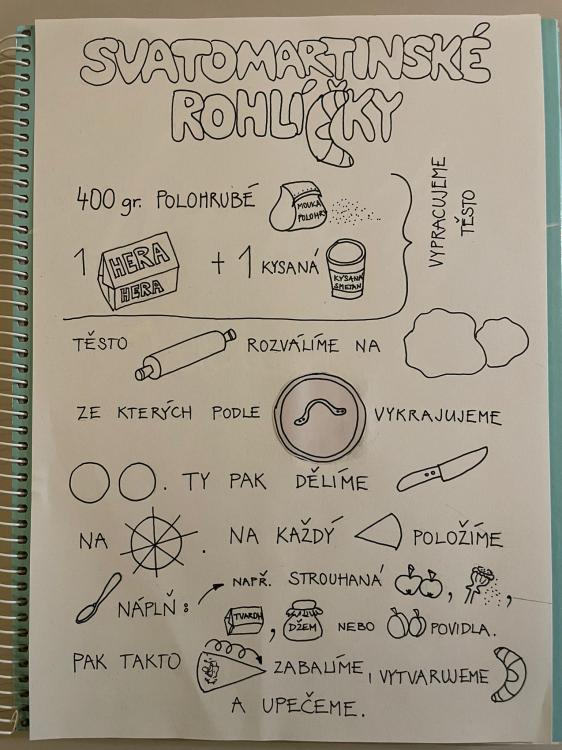 SVATOMARTINSKÉ
ROHLÍČKY
400 gr. POLOHRUBÉ
MOUKA
POLOHR
VYPRACUJEME
TĚSTO
1 HERA
HERA
+ 1 KYSANÁ
KYSANÁ
SMETAN
TĚSTO ROZVÁLÍME NA
ZE KTERÝCH PODLE VYKRAJUJEME
. TY PAK DĚLÍME
NA . NA KAŽDÝ POLOŽÍME
NÁPLŇ: NAPŘ. STROUHANÁ , ,
TVAROH , DŽEM NEBO POVIDLA.
PAK TAKTO ZABALÍME, VYTVARUJEME
A UPEČEME.